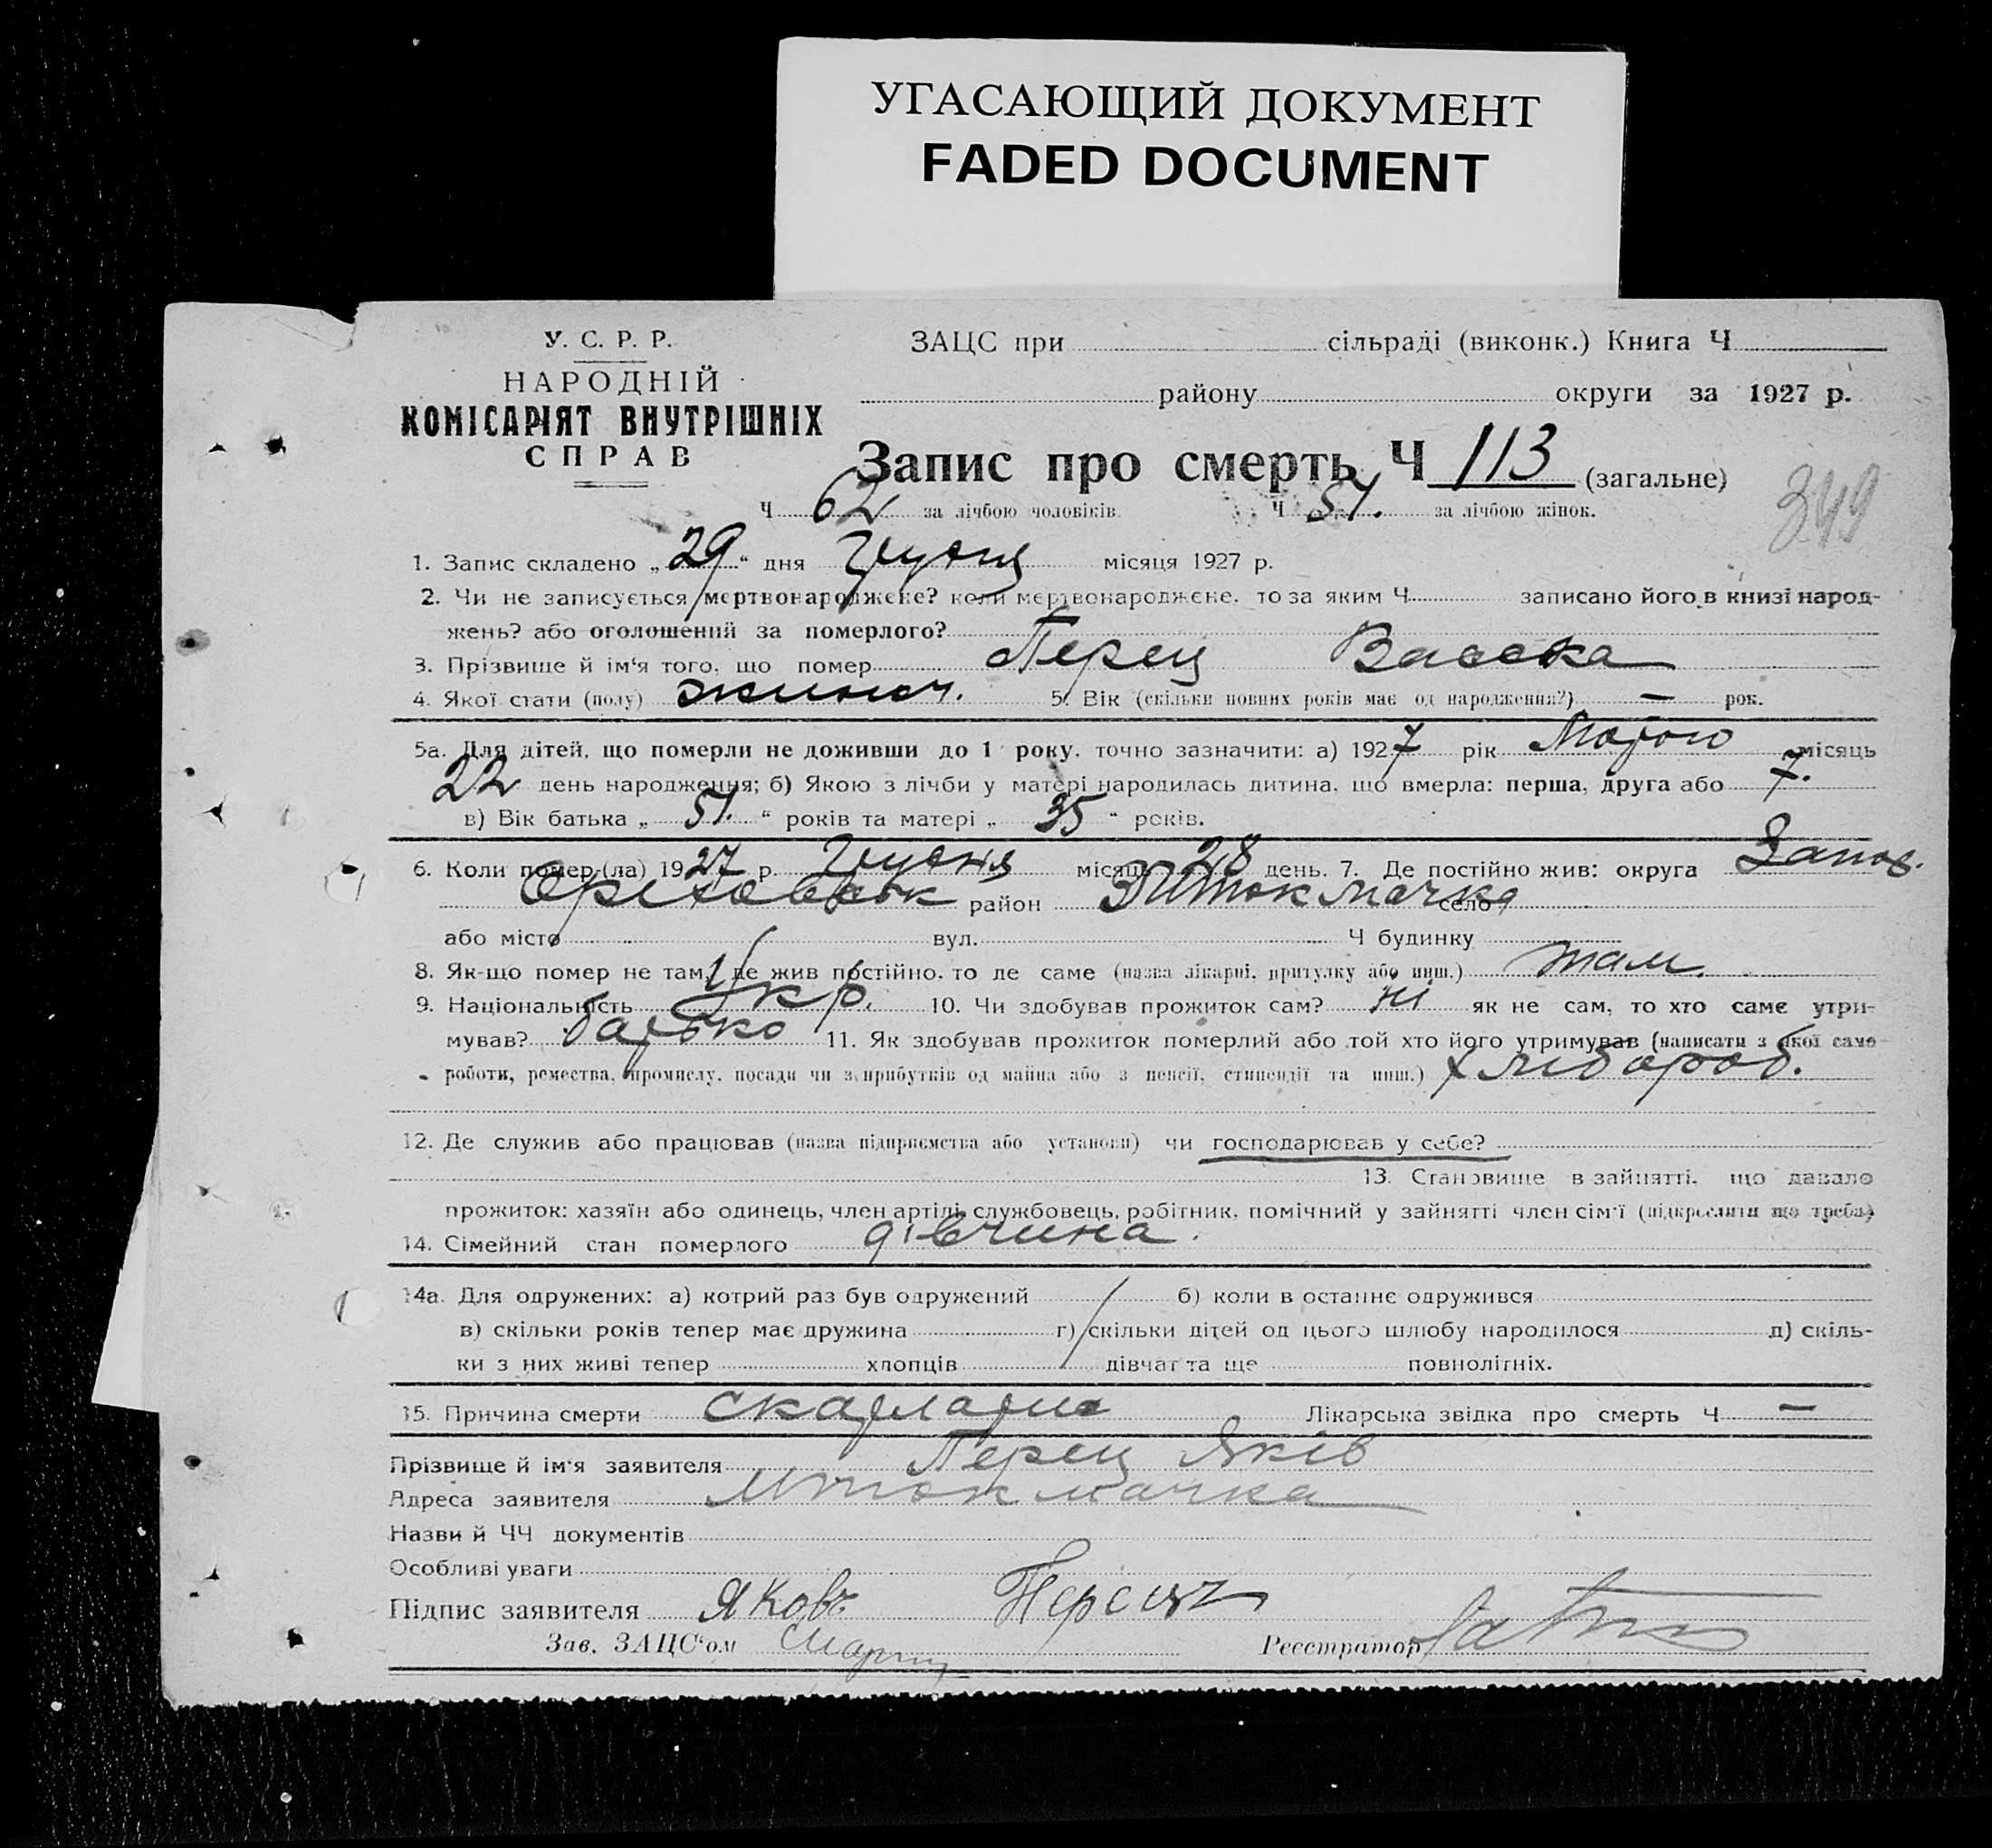 УГАСАЮЩИЙ ДОКУМЕНТ
FADED DOCUMENT
У. С. Р. Р.
НАРОДНІЙ
КОМІСАРІЯТ ВНУТРІШНІХ
СПРАВ
ЗАЦС при сільраді (виконк.) Книга Ч
району округи за 1927 р.
Запис про смерть Ч 113 (загальне)
349
Ч 62 за лічбою чоловіків. Ч 51. за лічбою жінок.
1. Запис складено „29“ дня Грудня місяця 1927 р.
2. Чи не записується мертвонароджене? коли мертвонароджене, то за яким Ч записано його в книзі народ-
жень? або оголошений за померлого?
3. Прізвище й ім'я того, що помер Перец Васска
4. Якої стати (полу) жиноч. 5. Вік (скільки повних років має од народження?) — рок.
5а. Для дітей, що померли не доживши до 1 року, точно зазначити: а) 1927 рік місяць
22 день народження; б) Якою з лічби у матері народилась дитина, що вмерла: перша, друга або 7.
в) Вік батька „51.“ років та матері „35“ років.
6. Коли помер (ла) 1927 р. Грудня місяць 28 день. 7. Де постійно жив: округа Запор.
район село
або місто вул. Ч будинку
8. Як-що помер не там, де жив постійно, то де саме (назва лікарні, притулку або инш.) там.
9. Національність Укр. 10. Чи здобував прожиток сам? ні як не сам, то хто саме утри-
мував? батько 11. Як здобував прожиток померлий або той хто його утримував (написати з якої саме
роботи, ремества, промислу, посади чи з прибутків од майна або з пенсії, стипендії та инш.) хлібороб.
12. Де служив або працював (назва підприємства або установи) чи господарював у себе?
13. Становище в зайнятті, що давало
прожиток: хазяїн або одинець, член артілі, службовець, робітник, помічний у зайнятті член сім'ї (підкреслити що треба)
14. Сімейний стан померлого дівчина.
14а. Для одружених: а) котрий раз був одружений б) коли в останнє одружився
в) скільки років тепер має дружина г) скільки дітей од цього шлюбу народилося д) скіль-
ки з них живі тепер хлопців дівчат та ще повнолітніх.
15. Причина смерти Лікарська звідка про смерть Ч —
Прізвище й ім'я заявителя Перец Яків
Адреса заявителя
Назви й ЧЧ документів
Особливі уваги
Підпис заявителя Яковъ
Зав. ЗАЦС'ом Реєстратор